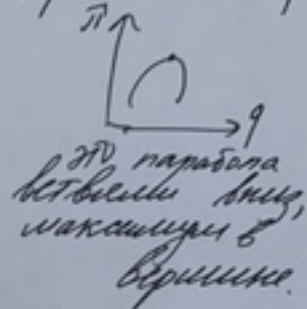 π
q
это парабола
ветвями вниз,
максимум в
вершине.